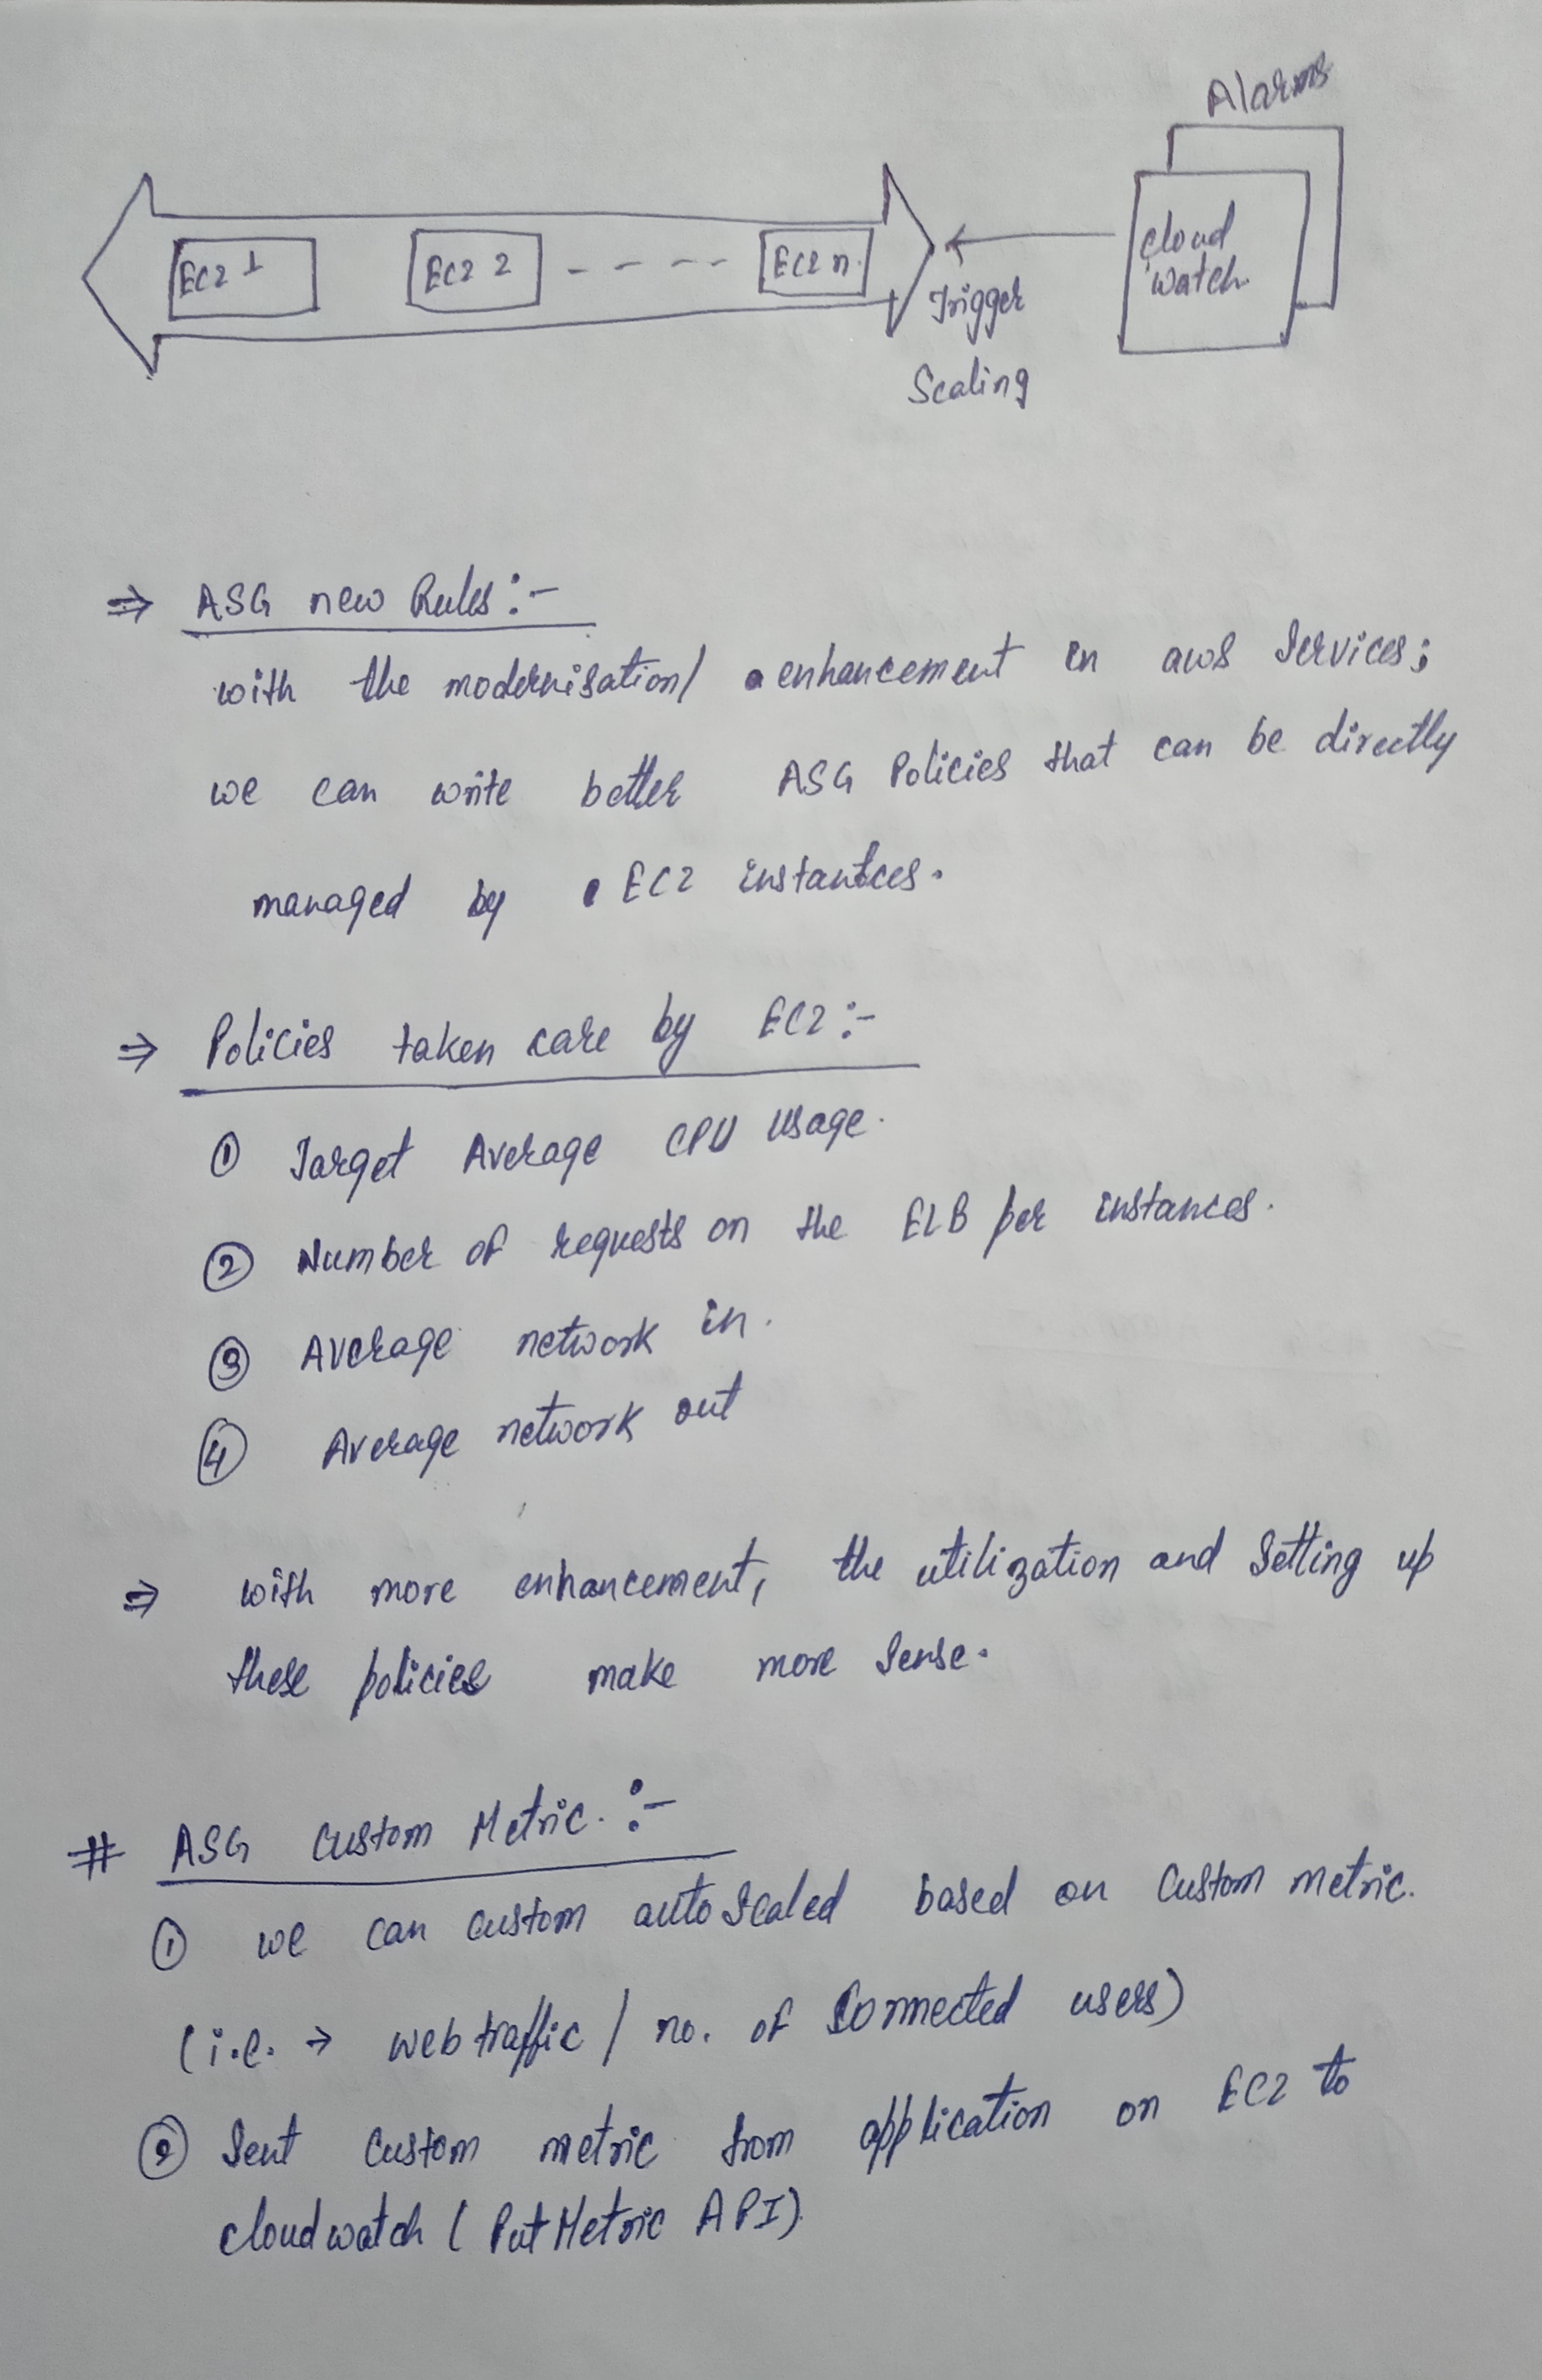 Alarms
EC2 1
EC2 2
- - - - -
EC2 n.
cloud
watch
Trigger
Scaling
⇒ ASG new Rules:-
with the modernisation/ enhancement in aws Services;
we can write better ASG Policies that can be directly
managed by EC2 instantces.
⇒ Policies taken care by EC2:-
① Target Average CPU Usage.
② Number of requests on the ELB per instances.
③ Average network in.
④ Average network out
⇒ with more enhancement, the utilization and Setting up
these policies make more Sense.
# ASG Custom Metric. :-
① we can custom auto Scaled based on Custom metric.
(i.e. → web traffic / no. of Connected users)
② Sent Custom metric from application on EC2 to
cloudwatch ( Put Metric API)